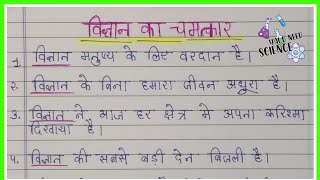 विज्ञान का चमत्कार
YOUR NEED
SCIENCE
1. विज्ञान मनुष्य के लिए वरदान है।
2. विज्ञान के बिना हमारा जीवन अधूरा है।
3. विज्ञान ने आज हर क्षेत्र मे अपना करिश्मा
दिखाया है।
4. विज्ञान की सबसे बड़ी देन बिजली है।